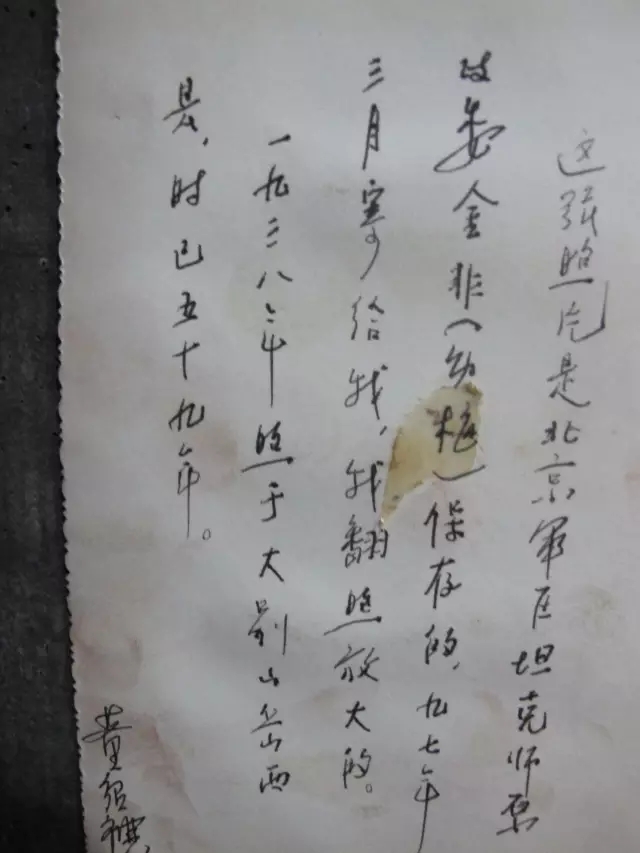 这张照片是北京军区坦克师原
政委金非()保存的,九七年
三月寄给我,我翻照放大的。
一九三八年照于大别山岳西
县,时已五十九年。
黄绍